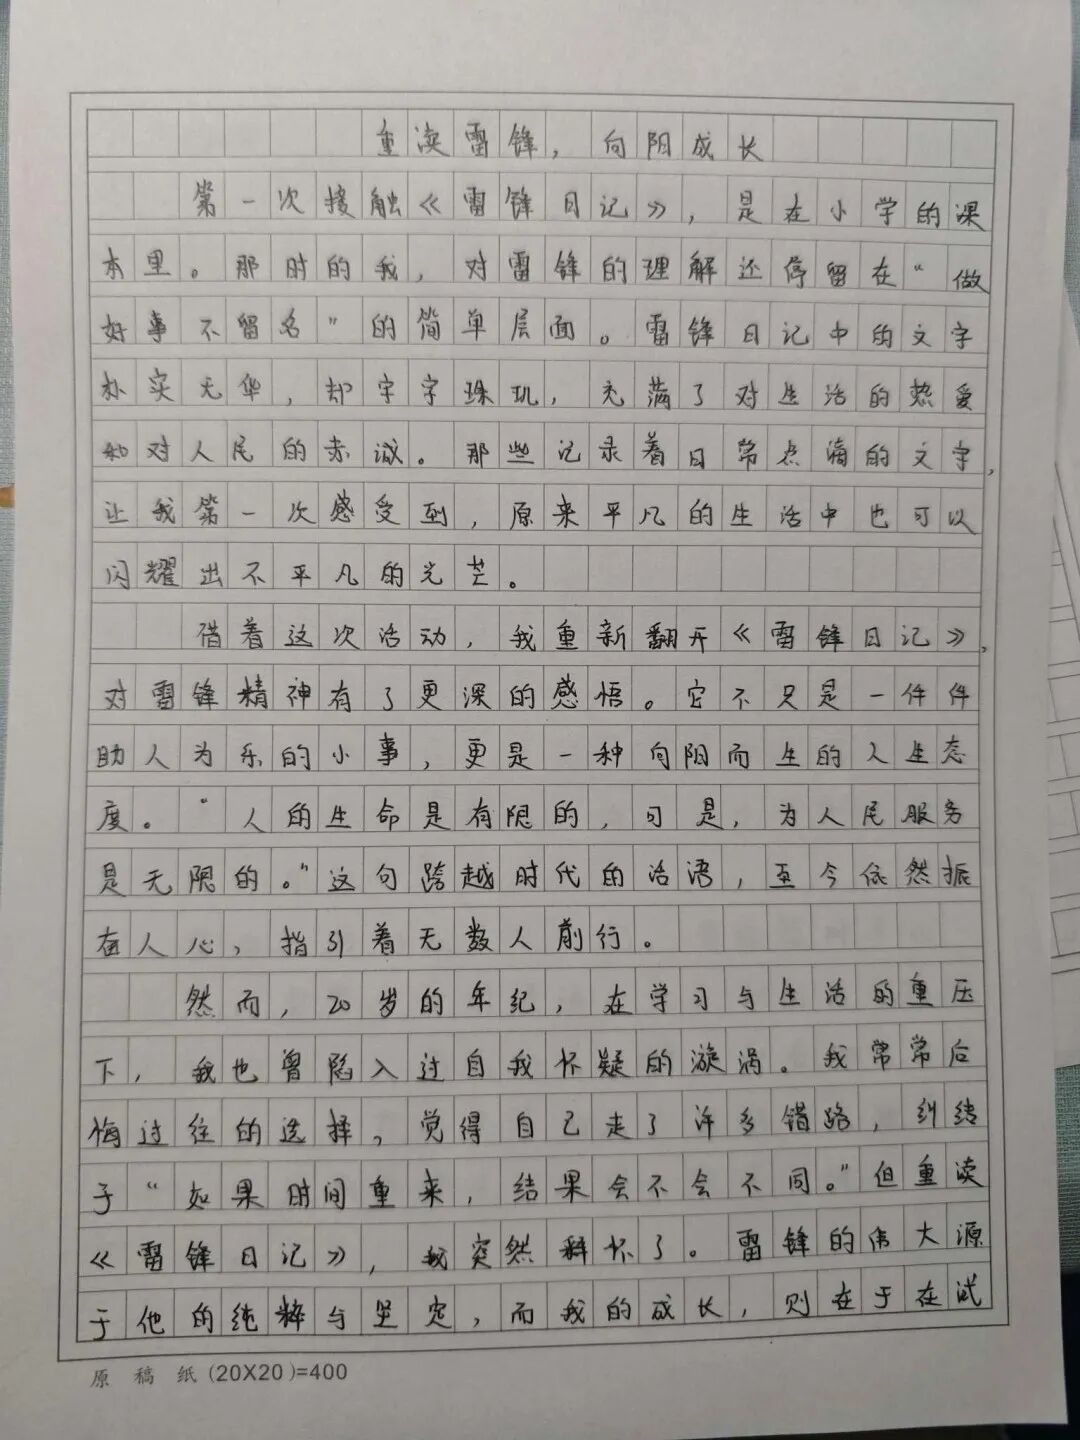 重读雷锋，向阳成长
第一次接触《雷锋日记》，是在小学的课
本里。那时的我，对雷锋的理解还停留在“做
好事不留名”的简单层面。雷锋日记中的文字
朴实无华，却字字珠玑，充满了对生活的热爱
和对人民的赤诚。那些记录着日常点滴的文字，
让我第一次感受到，原来平凡的生活中也可以
闪耀出不平凡的光芒。
借着这次活动，我重新翻开《雷锋日记》，
对雷锋精神有了更深的感悟。它不只是一件件
助人为乐的小事，更是一种向阳而生的人生态
度。“人的生命是有限的，可是，为人民服务
是无限的。”这句跨越时代的话语，至今依然振
奋人心，指引着无数人前行。
然而，20岁的年纪，在学习与生活的重压
下，我也曾陷入过自我怀疑的漩涡。我常常后
悔过往的选择，觉得自己走了许多错路，纠结
于“如果时间重来，结果会不会不同。”但重读
《雷锋日记》，我突然释怀了。雷锋的伟大源
于他的纯粹与坚定，而我的成长，则在于在试
原稿纸(20X20)=400